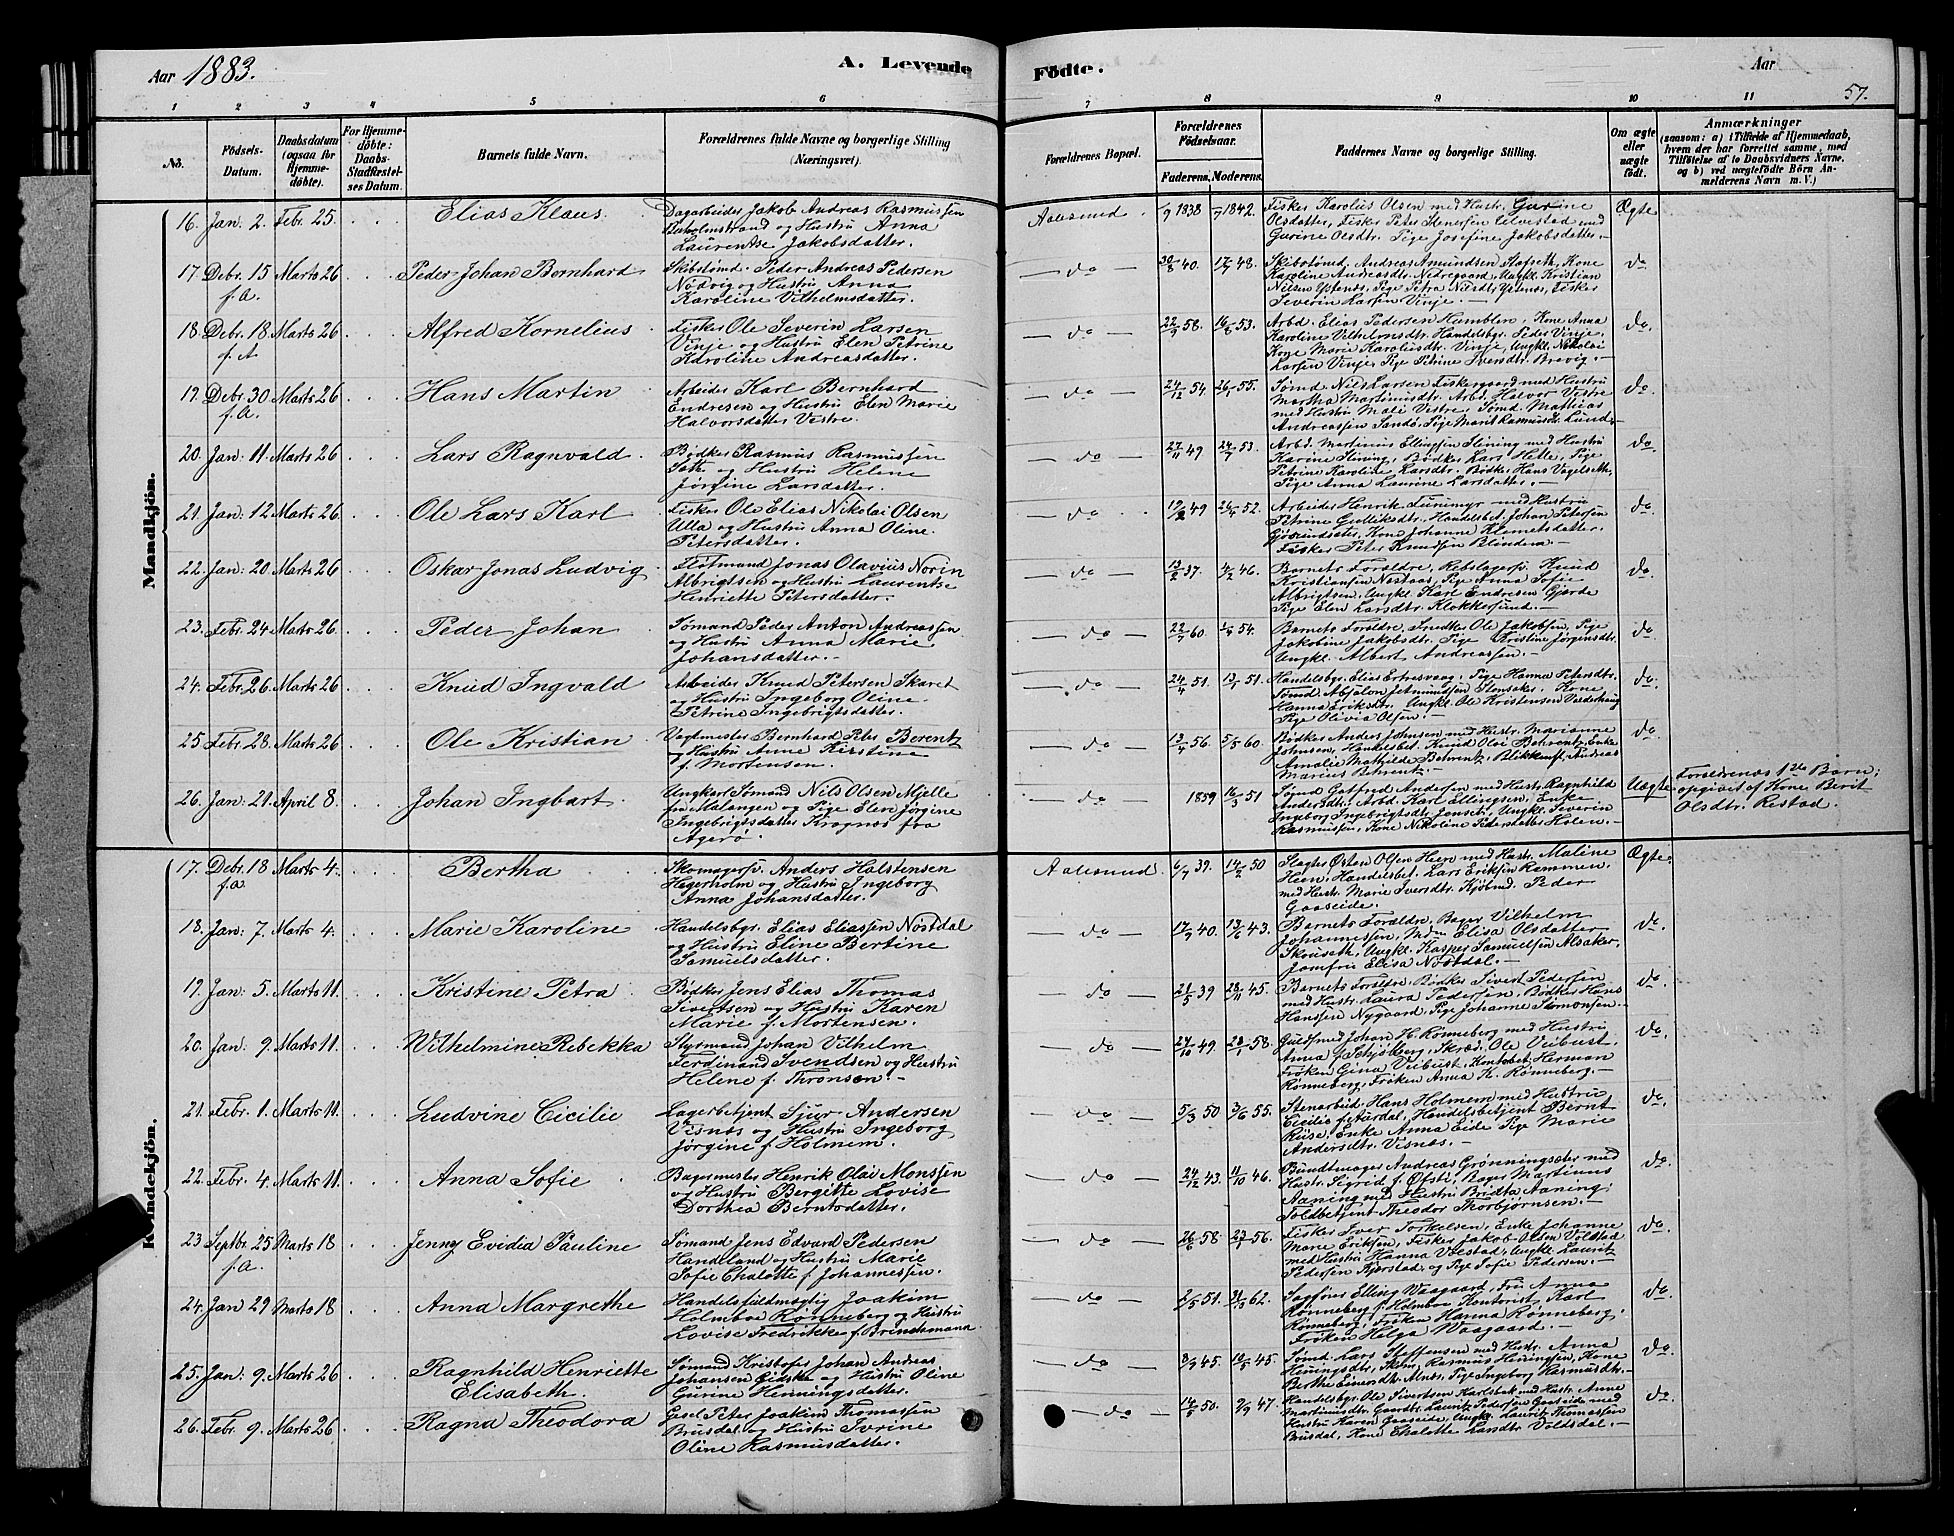 Aar 1883.
A. Levende Födte.
Aar
57.
1 2 3 4 5 6 7 8 9 10 11
No.
Födsels-Datum.
Daabsdatum (ogsaa for Hjemme-döbte).
For Hjemme-döbte: Daabs-Stadfæstelses Datum.
Barnets fulde Navn.
Forældrenes fulde Navne og borgerlige Stilling (Næringsvei).
Forældrenes Bopæl.
Forældrenes Födselsaar.
Faderens. Moderens.
Faddernes Navne og borgerlige Stilling.
Om ægte eller uægte födt.
Anmærkninger
(saasom: a) i Tilfælde af Hjemmedaab,
hvem der har forrettet samme, med
Tilföielse af to Daabsvidners Navne,
og b) ved uægtefödte Börn An-
melderens Navn m. V.)
Mandkjön.
16. Jan. 2. Febr. 25. Elias Klaus. Dagarbeider Jakob Andreas Rasmussen
og Hustru Anna
Laurentse Jakobsdatter.
Aalesund. 1838 1842.
Fisker Karolius Olsen med Hustr. Gurine
Olsdatter, Fisker Peter Stensen med
Gurine Olsdtr. Pige Josefine Jakobsdatter.
Ægte
17. Debr. 15 f.A. Marts 26 Peder Johan Bernhard Skibstømd. Peder Andreas Pedersen
Nødvig og Hustru Anna
Karoline Vilhelmsdatter.
do 30/8 40. 17/7 48.
Skibstømd. Andreas Amundsen Slafseth, Kone
Karoline Andreasdtr. Nedregaard, Ungkl. Kristian
Nilsen Ystenæs, Pige Petra Nilsdtr. Ystenæs, Fisker
Severin Larsen Vinje.
do
18. Debr. 18 f.A. Marts 26 Alfred Kornelius Fisker Ole Severin Larsen
Vinje og Hustru Elen Petrine
Karoline Andreasdatter.
do 22/9 58. 16/6 53.
Arbd. Elias Pedersen Humblen, Kone Anna
Karoline Vilhelmsdtr. Handelsbgr. Peder Vinje,
Kone Marie Karoliusdtr. Vinje, Ungkl. Nikolai
Larsen Vinje, Pige Petrine Iversdtr. Brevig.
do.
19. Debr. 30 f.A. Marts 26 Hans Martin Arbeider Karl Bernhard
Endresen og Hustru Elen Marie
Halvorsdatter Vestre.
do 24/12 54. 26/1 55.
Sømd. Nils Larsen Fiskergaard med Hustru
Martha Martinusdtr. Arbd. Halvor Vestre
med Hustru Mali Vestre, Sømd. Mathias
Andreassen Sandø, Pige Marit Rasmusdr. Lund.
do
20. Jan: 11. Marts 26 Lars Ragnvald. Bødker Rasmus Rasmussen
og Hustru Helene
Jørgine Larsdatter.
do 27/11 49 24/7 53.
Arbd. Martinus Ellingsen Slening med Hustru
Karine Slening, Bødker Lars Helle, Pige
Petrine Karoline Larsdtr. Bødker Hans Vegelseth,
Pige Anna Laurine Larsdatter.
do
21. Jan: 12. Marts 26 Ole Lars Karl Fisker Ole Elias Nikolai Olsen
Ulla og Hustru Anna Oline
Petersdatter.
do 19/2 49 26/4 52.
Arbeider Henrik med Hustru
Petrine Gulliksdtr. Handelsbet. Johan Petersen
Kone Johanne Klemetsdatter.
Fisker Peter Knudsen Blindena.
do
22. Jan: 20. Marts 26 Oskar Jonas Ludvig Fløtmand Jonas Olavius Norin
Albrigtsen og Hustru Laurentse
Henriette Petersdatter.
do 13/2 37. 4/2 46.
Barnets Forældre, Rebslagersv. Knud
Kristiansen Nastaas, Pige Anna Sofie
Albrigtsen, Ungkl. Karl Endresen Gjerde
Pige Elen Larsdtr. Klokkersund.
do
23. Febr. 24 Marts 26 Peder Johan Sømand Peder Anton Andreassen
og Hustru Anna Marie
Johansdatter.
do 22/7 60. 54.
Barnets Forældre, Snedker Ole Jakobsen, Pige
Jakobine Jakobsdtr. Pige Kristine Jørgensdtr.
Ungkl. Albert Andreassen.
do
24. Febr. 26. Marts 26 Knud Ingvald Arbeider Knud Petersen Skaret
og Hustru Ingeborg Oline
Petrine Ingebrigtsdatter.
do 24/4 51. 13/1 51.
Handelsbgr. Elias Ertnesvaag, Pige Hanna Petersdtr.
Tømd. Absalon Jetmundsen Stensaker, Kone
Hanna Eriksdtr. Ungkl. Ole Kristensen Valderhaug
Pige Olivia Olsen.
do.
25 Febr. 28. Marts 26 Ole Kristian Vagtmester Bernhard Peter Berentz
Hustru Anne Kirstine
f. Mortensen.
do 13/4 56. 5/5 60.
Bødker Anders Johnsen med Hustr. Marianne
Johnsen, Handelsbet. Knud Olai Behrentz, Enke
Amalie Mathilde Behrentz, Blikkensl. Andreas
Marius Behrentz.
do
26. Jan: 21. April 8. Johan Ingbart. Ungkar Sømand Nils Olsen Mjelle
fra Malangen og Pige Elen Jørgine
Ingebrigtsdatter Kragnæs fra
Agerø.
do 1859 16/3 51
Sømd Gotfred Andersen med Hustr. Ragnhild
Andersdtr. Arbd. Karl Ellingsen, Enke
Ingeborg Ingebrigtsdtr. Jonset, Ungkl. Severin
Rasmussen, Kone Nikoline Pedersdatter Holen.
Uægte
Forældrenes 1ste Barn;
opgivet af Kone Berit
Olsdtr. Restad.
Kvindekjön.
17. Debr. 18 f.a. Marts 4. Bertha Skomagersv. Anders Halstensen
Hagerholm og Hustru Ingeborg
Anna Johansdatter.
Aalesund. 6/7 39. 14/2 50
Slagter Østen Olsen Heen med Hustr. Maline
Heen, Handelsbet. Lars Eriksen Rammen.
med Hustr. Marie Iversdtr. Kjøbmd. Peder
Gaaseide.
Ægte.
18. Jan: 7. Marts 4. Marie Karoline Handelsbgr. Elias Eliassen Nöstdal
og Hustru Eline Bertine
Samuelsdatter.
do 17/9 40. 13/6 43.
Barnets Forældre, Bager Vilhelm
Johannessen, Mdm Elisa Olsdatter
Skouseth, Ungkl. Kasper Samuelsen Alsaker,
Jomfru Elisa Nöstdal.
do.
19. Jan: 5. Marts 11. Kristine Petra Bødker Jens Elias Thomas
Sivertsen og Hustru Karen
Marie f. Mortensen.
do 21/5 39 28/11 45.
Barnets Forældre, Bødker Sivert Pedersen
med Hustr. Laura Pedersen, Bødker Hans
Hanssen Nygaard, Pige Johanne Simonsen.
do
20. Jan: 9. Marts 11. Wilhelmine Rebekka Styrmand Johan Vilhelm
Ferdinand Svendsen og Hustru
Helene f. Thronsen.
do 27/10 49. 23/1 58.
Guldsmed Johan H. Rønneberg med Hustru
Anna f. Schjølberg, Skræd. Ole Veibust,
Frøken Gina Veibust, Kontorbet. Herman
Rønneberg, Frøken Anna K. Rønneberg.
do
21. Febr. 1. Marts 11. Ludvine Cicilie Lagerbetjent Sjur Andersen
Visnæs og Hustru Ingeborg
Jørgine f. Holmem.
do 5/3 50 3/6 55.
Stenarbeid. Hans Holmem med Hustru
Cicilie f. Aurdal, Handelsbetjent Bernt
Riise, Enke Anna Eide, Pige Marie
Andersdtr. Visnæs.
do.
22. Febr. 4. Marts 11. Anna Sofie Bagermester Henrik Olai Monssen
og Hustru Bergitte Lovise
Dorthea Berntsdatter.
do 24/12 43. 11/10 46.
Bundtmager Andreas Grønningsæter med
Hustr. Sigrid f. Ofsti, Bager Martinus
Aaning med Hustru Bridta Aaning,
Toldbetjent Theodor Thorbjørnsen.
do
23 Septbr. 25 f.A. Marts 18 Jenny Evidia Pauline Sømand Jens Edvard Pedersen
Handeland og Hustru Marie
Sofie Chalotte f. Johannessen.
do 26/6 58. 27/1 56.
Fisker Iver Torkelsen, Enke Johanne
Marie Eriksen, Fisker Jakob Olsen Volstad
med Hustru Hanna Volstad, Ungkl. Laurits
Pedersen Kjørstad, og Pige Sofie Pedersen.
do
24. Jan 29 Marts 18 Anna Margrethe Handelsfuldmægtig Joakim
Holmboe Rønneberg og Hustru
Lovise Fredrikke f. Brindemann.
do 2/5 51. 31/10 62.
Sagfører Elling Waagaard, Fru Anna
Rønneberg f. Holmboe, Kontorist Karl
Rønneberg, Frøken Hanna Rønneberg.
Frøken Helga Waagaard.
do.
25. Jan: 9. Marts 26 Ragnhild Henriette
Elisabeth. Sømand Kristofer Johan Andreas
Johansen Giske og Hustru Oline
Gurine Henningsdatter.
do 3/9 45. 10/5 45.
Sømd. Lars Steffensen med Hustr. Anna
Heningsdtr., Skom. Rasmus Heningsen, Kone
Berthe Einersdtr. Alnes, Pige Ingeborg Rasmusdtr.
do.
26. Febr. 9. Marts 26 Ragna Theodora Gesel Peter Joakim Thomassen
Brusdal og Hustru Iverine
Oline Rasmusdatter.
do 14/5 50. 2/9 47.
Handelsbgr. Ole Sivertsen Karlsbak med Hustr. Anne
Martinusdtr., Gaardbr. Laurits Pedersen Gaaseide med
Hustru Karen Gaaseide, Ungkl. Laurits Thomassen
Brusdal, Kone Chalotte Larsdtr. Voldsdal.
do